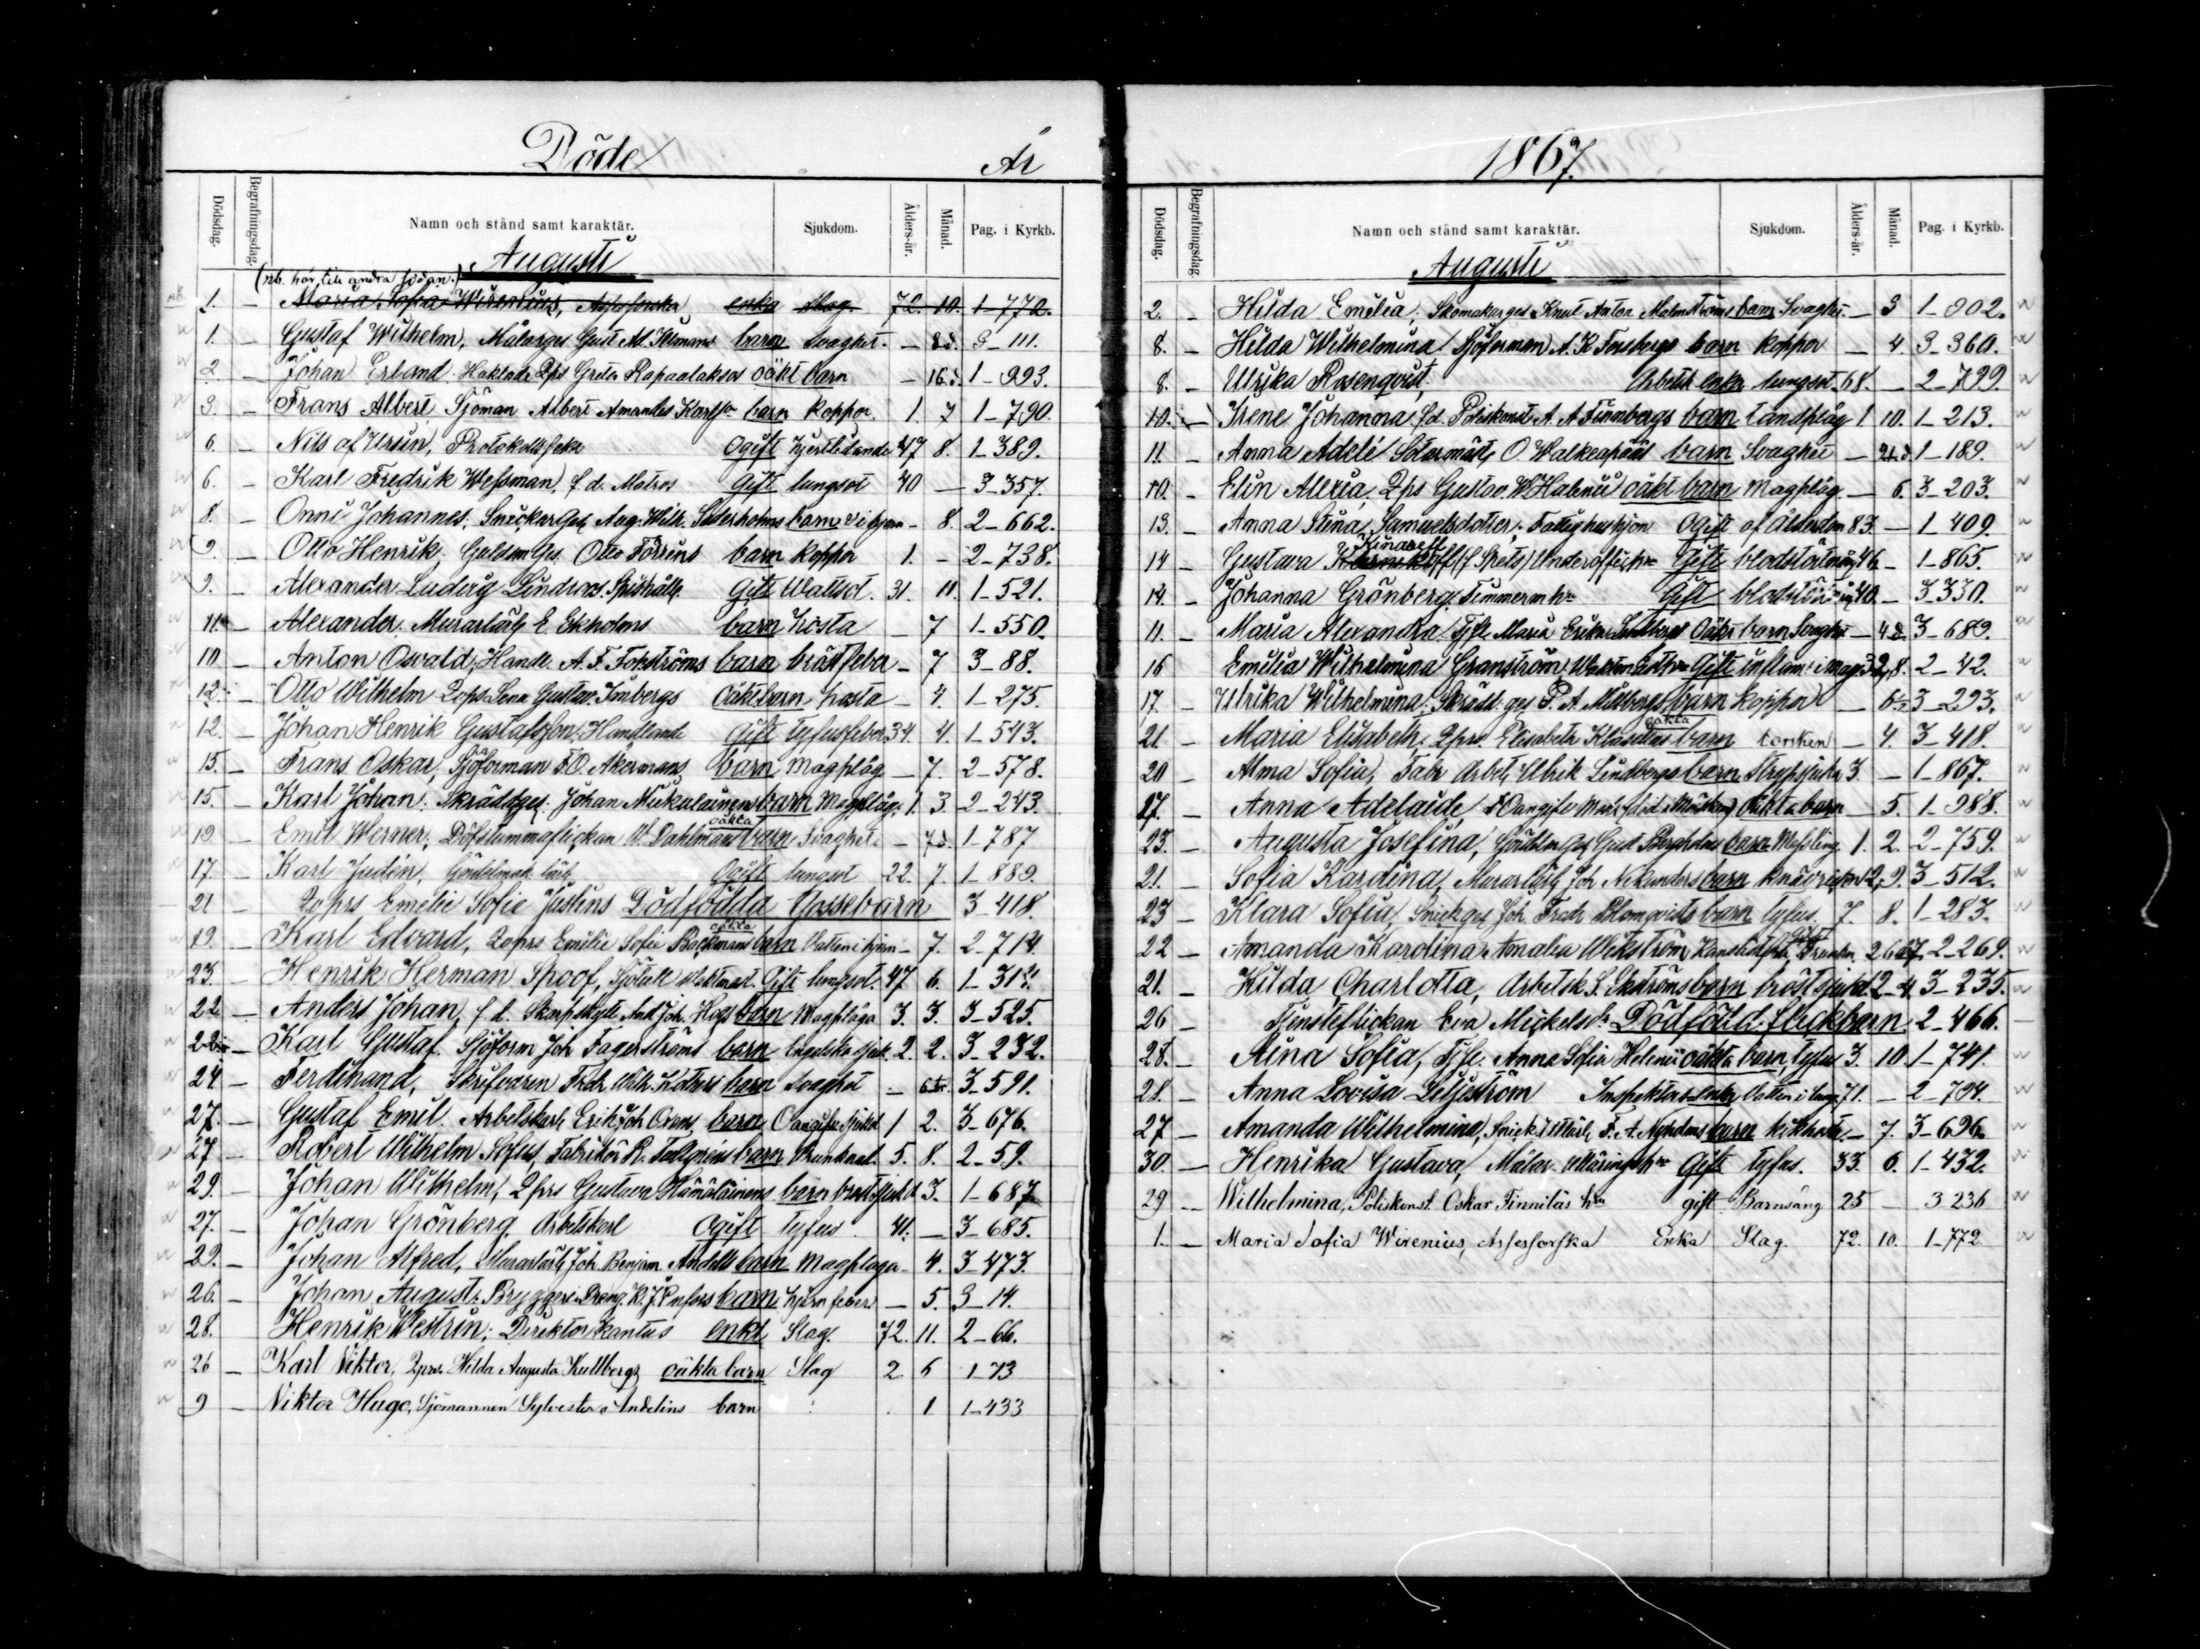 Döde År
Dödsdag. Begrafningsdag. Namn och stånd samt karaktär. Sjukdom. Ålders-år. Månad. Pag. i Kyrkb.
Augusti
(nb. hör till andra sidan.)
1. — Maria Sofia Wirenius, Assessorska enka Slag. 72. 10. 1-772.
1. — Gustaf Wilhelm, Målarges Gust. Ad. barn svaghet. — 8d. 3-111.
2. — Johan Erland. Qps Greta Rapaalaksos oäkt barn — 16.d. 1-993.
3. — Frans Albert, Sjöman Albert Amandus Karls barn koppor. 1. 7 1-790.
6. — Nils af Ursin, Protokollssekr Ogift hjertlidande 47 8. 1-389.
6. — Karl Fredrik Wessman, f.d. Matros Gift lungsot 40 — 3-357.
8. — Onni Johannes, Snickar Ges. Aug. Wilh. Söderholms barn — 8. 2-662.
9. — Otto Henrik, Guldsm Ges. Otto barn koppor 1. - 2-738.
9. — Alexander Ludvig Lindroos. Gift Wattsot. 31. 11. 1-521.
11. — Alexander. Murarlärl E. Ekholms barn hosta — 7 1-550.
10 — Anton Oswald, Handl. A. F. Fokströms barn bröstfeber — 7 3-88.
12. — Otto Wilhelm Qps Lena Gustav. barn hosta — 4. 1-275.
12. — Johan Henrik Gustafsson, Handlande Gift tyfusfeber 34. 4. 1-543.
15. — Frans Oskar, Sjöforman F.O. Åkermans barn Magplåg — 7. 2-578.
15. — Karl Johan. Skräddges. Johan barn Magplåg. 1. 3. 2-243.
19. — Emil Werner, Döfstumma flickan W. Dahlmans oäkta barn Svaghet. — 7d. 1-787
17. — Karl Judin, Ogift lungsot 22. 7. 1-889.
21 — Qvprs Emelie Sofie Justins Dödfödda Gossebarn 3-418.
19. — Karl Edvard, Qvprs Emilie Sofie Backmans oäkta barn Vatten i hjern — 7. 2-714
23. — Henrik Herman Spoof, Gift lungsot. 47 6. 1-312.
22. — Anders Johan, f.d. And. Joh. barn Magplåga 3. 3. 3-525.
22. — Karl Gustaf. Sjöform Joh Fagerströms barn Engelska Sjuk. 2. 2. 3-232.
24 — Ferdinand, Fredr. Wilh. barn svaghet — 3-591.
27. — Gustaf Emil. Arbetskarl, Erik Joh barn Oangifven Sjukd. 1 2. 3-676.
27 — Robert Wilhelm Fabrikör R. barn 5. 8. 2-59.
29. — Johan Wilhelm, Qprs Gustava Hämäläinens barn bröstsjukd 3. 1-687
27. — Johan Grönberg. Arbetskarl Ogift tyfus. 41. — 3-685.
29. — Johan Alfred, Murarlärl, Joh. Benjam. barn Magplåga — 4. 3-473.
26. — Johan August, Bryggeri Dräng, barn hjernfeber — 5. 3-14.
28. Henrik Westrin, Direktor Kantus enkl Slag. 72. 11. 2-66.
26 — Karl Viktor, Qprs. Hilda Augusta Kullbergs oäkta barn Slag 2. 6 1-73
9 — Viktor Hugo, Sjömannen Sylvester Andelins barn 1 1-433
1867.
Dödsdag. Begrafningsdag. Namn och stånd samt karaktär. Sjukdom. Ålders-år. Månad. Pag. i Kyrkb.
Augusti
2. — Hilda Emilia, Skomakarges Knut Anton Malmströms barn Svaghet — 3 1-902.
8. — Hilda Wilhelmina Sjöforman A. K. Forsbergs barn koppor — 4. 3-360.
8. — Ulrika Rosenqvist, Arbets enka lungsot. 68. — 2-799.
10. — Irene Johanna, f.d. Poliskonst. A. A. barn tandplåg 1. 10. 1-213.
11. — Anna Adele O. Walkeapääs barn Svaghet — 1-189.
10. — Elin Alexia, Qps Gustav. W. oäkt barn magplåg. — 6. 3-203.
13. — Anna Stina Samuelsdotter, Fattighushjon Ogift af ålderdom 83. — 1-409.
14 — Gustava Kinareff (f. Spets) Underoffic. hu Gift blodstörtning 46 — 1-865.
14. — Johanna Grönberg, Timmerm hu Gift blodstörtning 40. — 3 330.
11. — Maria Alexandra, Maria Erika oäkt barn Svaghet — 4d. 3-689.
16 Emilia Wilhelmina Granström, Gift inflam. i mag. 32, 8. 2-42.
17. — Ulrika Wilhelmina, Skrädd. ges P. A. barn koppor — 3-293.
21. — Maria Elisabeth, Qprs. Elisabeth oäkta barn torsken — 4. 3-418.
20 — Alma Sofia, Fabr Arbet. Ulrik Lindbergs barn Strypsjuka 3. — 1-867.
17. — Anna Adelaide, oäkta barn — 5. 1-988.
23. — Augusta Josefina, Gust Bergholms barn Messling 1. 2. 2-759.
21. — Sofia Karolina, Murarlärl, Joh Nikanders barn 2. 9. 3-512.
23 — Klara Sofia, Snickges Joh. Fredr Blomqvists barn tyfus. 7. 8. 1-283.
22 — Amanda Karolina Amalia Wikström Gift Drunkn. 26 2-269.
21. — Hilda Charlotta, Arbetsk. S. Ekströms barn bröstsjukd. 2-4. 3-235.
26 — Tjensteflickan Eva Mickelsdr Dödfödd flickbarn 2-466.
28. — Aina Sofia, Anna Sofia oäkta barn, tyfus 3. 10 1-741.
28. — Anna Lovisa Liljeström Inspektors enka Vatten i lung. 71. — 2-794.
27 — Amanda Wilhelmina, F. A. Nyholms barn kikhosta — 7. 3-696.
30. — Henrika Gustava, Målar. hu Gift tyfus. 33. 6. 1-432.
29 — Wilhelmina, Poliskonst. Oskar Finniläs hu gift Barnsäng 25 — 3 236
1. — Maria Sofia Wirenius, Assessorska Enka Slag. 72. 10. 1-772